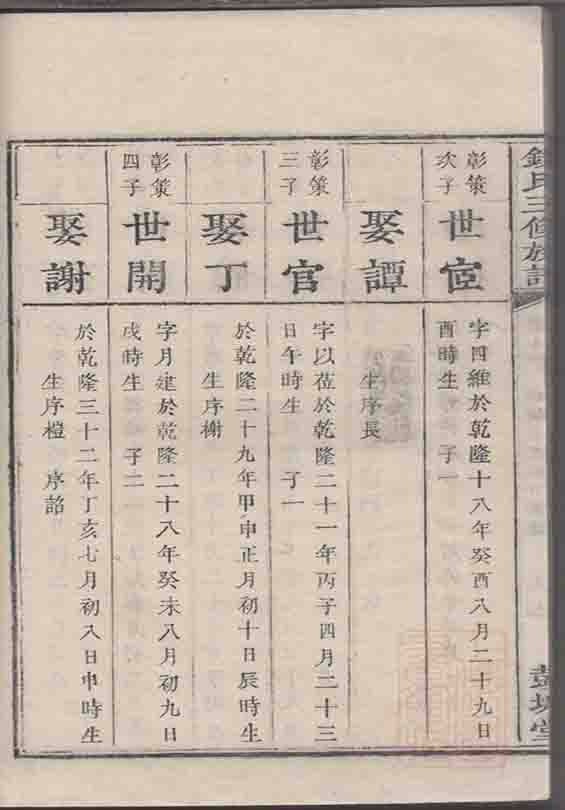 氏三修族譜
彰策
次子
世宦
字四維於乾隆十八年癸酉八月二十九日
酉時生 子一
娶譚
生序長
彰策
三子
世官
字以莅於乾隆二十一年丙子四月二十三
日午時生 子一
娶丁
於乾隆二十九年甲申正月初十日辰時生
生序榭
彰策
四子
世開
字月建於乾隆二十八年癸未八月初九日
戌時生 子二
娶謝
於乾隆三十二年丁亥七月初八日申時生
生序榿 序詔